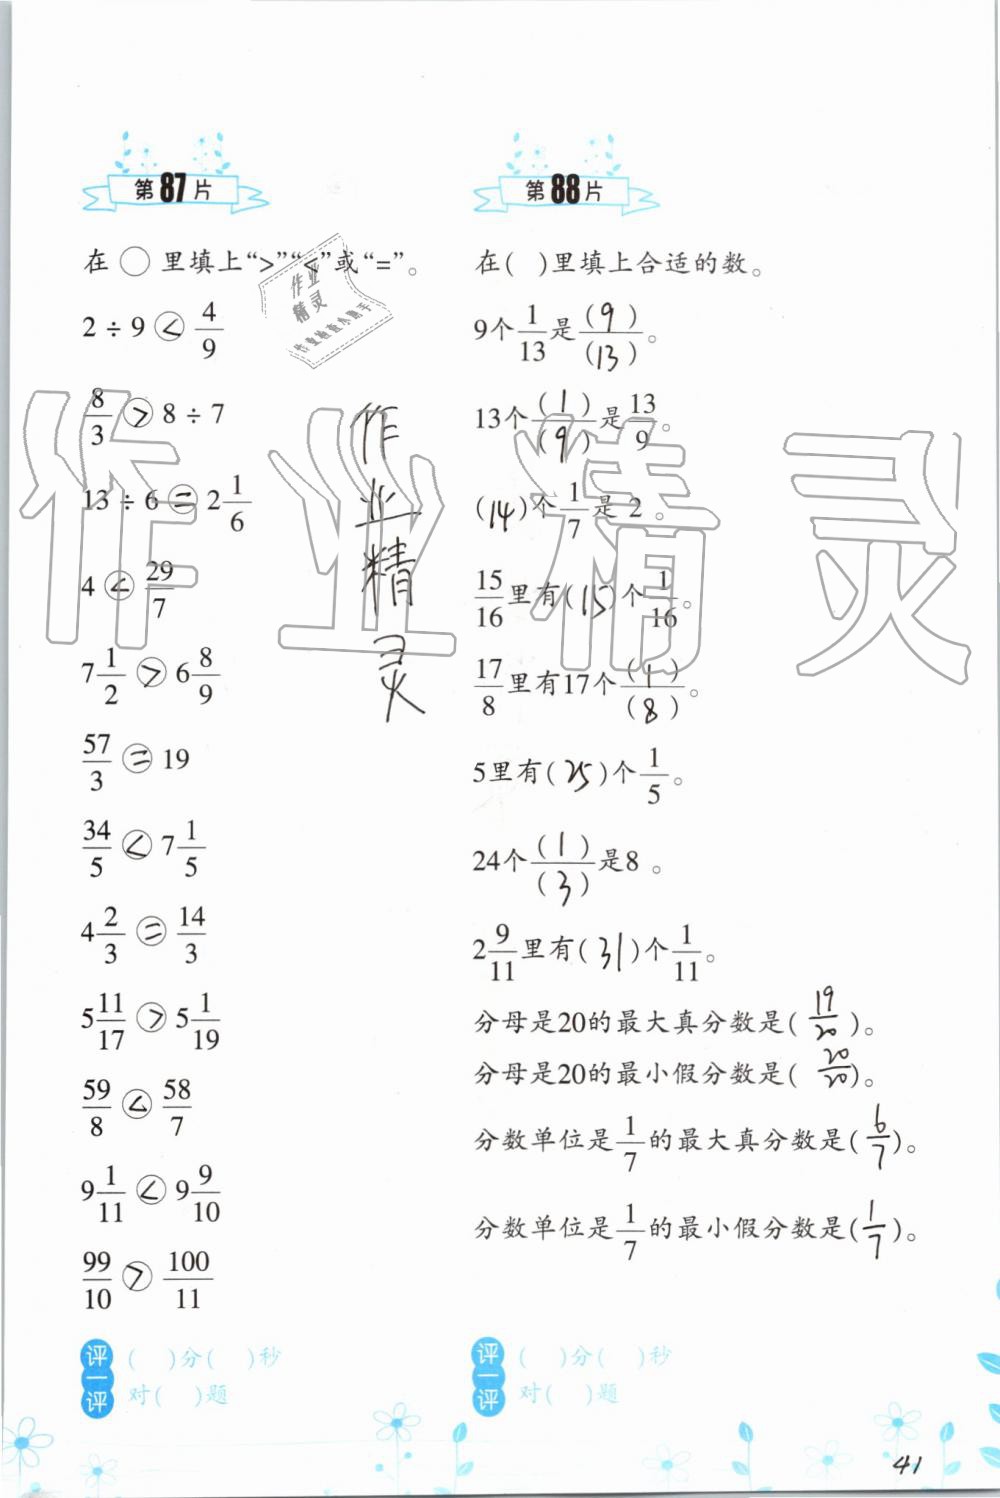 第87片
在○里填上“>”“<”或“=”。
2 ÷ 9 < 4/9
8/3 > 8 ÷ 7
13 ÷ 6 = 2 1/6
4 < 29/7
7 1/2 > 6 8/9
57/3 = 19
34/5 < 7 1/5
4 2/3 = 14/3
5 11/17 > 5 1/19
59/8 < 58/7
9 1/11 < 9 9/10
99/10 > 100/11
评一评
( )分( )秒
对( )题
第88片
在( )里填上合适的数。
9个 1/13 是 (9)/(13) 。
13个 (1)/(9) 是 13/9 。
(14)个 1/7 是 2 。
15/16 里有(15)个 1/16 。
17/8 里有17个 (1)/(8) 。
5里有(25)个 1/5 。
24个 (1)/(3) 是8 。
2 9/11 里有(31)个 1/11 。
分母是20的最大真分数是( 19/20 )。
分母是20的最小假分数是( 20/20 )。
分数单位是 1/7 的最大真分数是( 6/7 )。
分数单位是 1/7 的最小假分数是( 1/7 )。
评一评
( )分( )秒
对( )题
作业精灵
作业精灵
作业
精灵
作业检查小助手
41